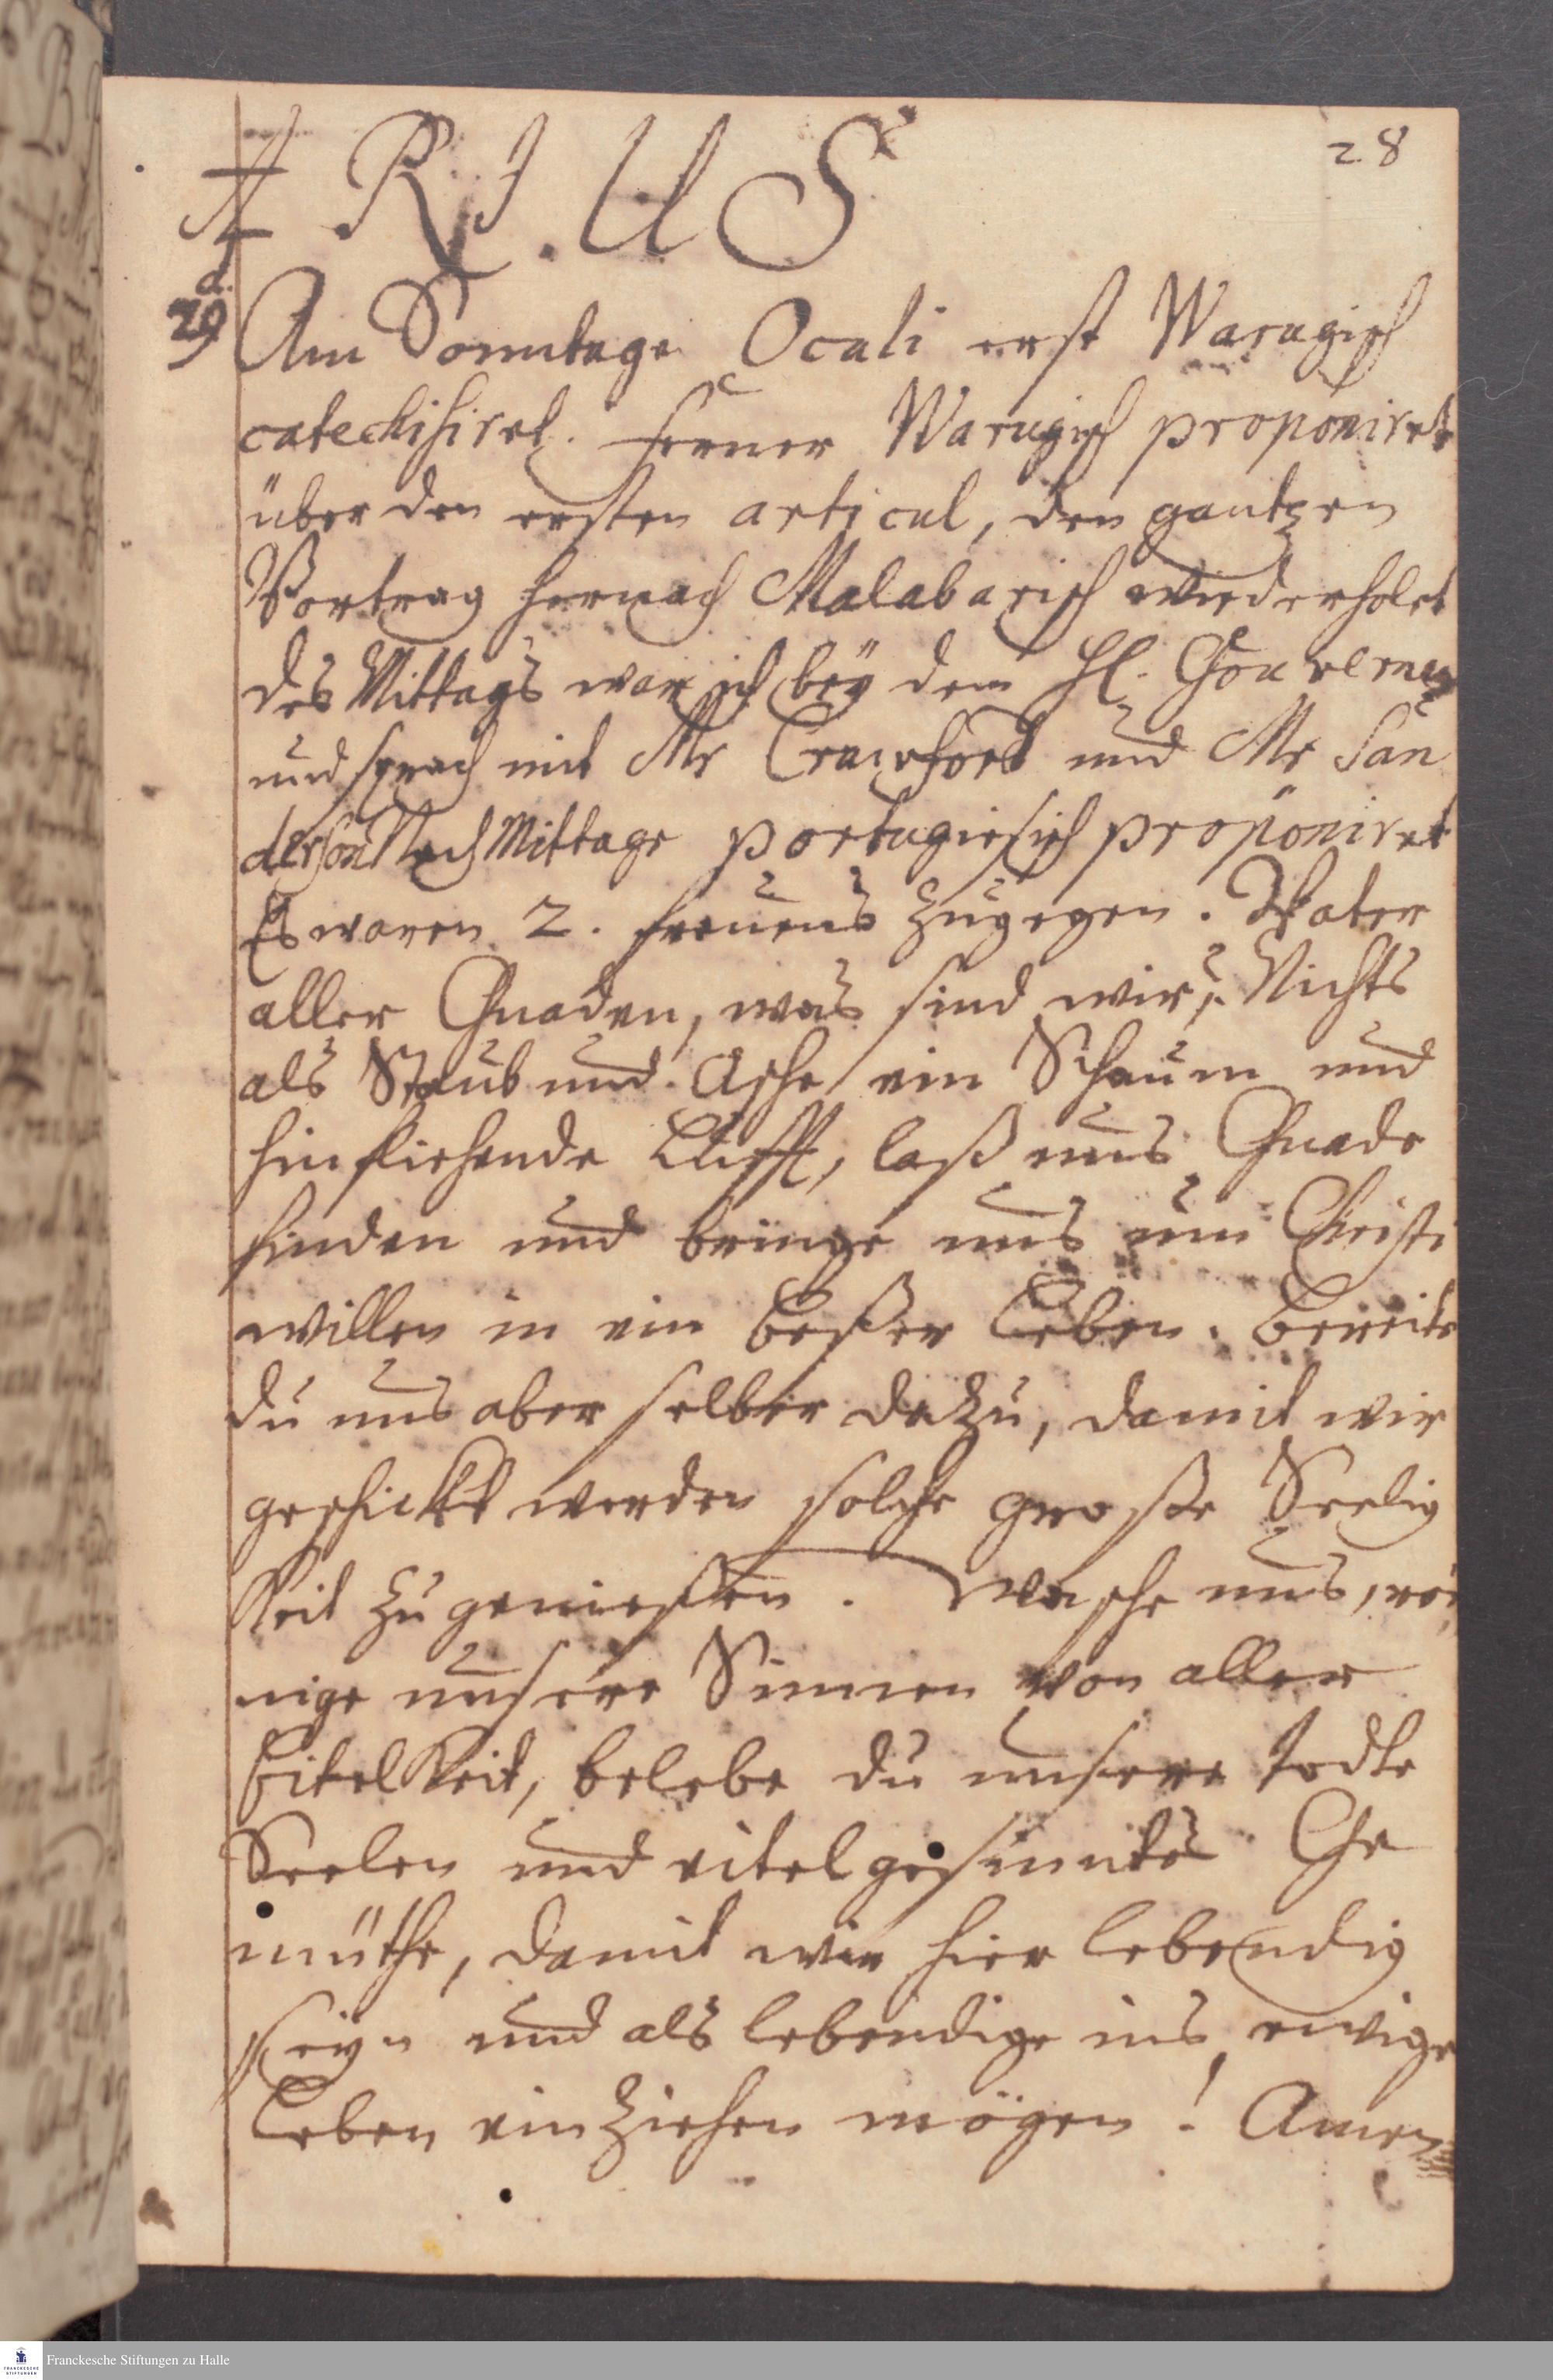 A R I U S
28
d.
29 Am Sonntage Oculi erst Warugisch
catechisiret. ferner Warugisch proponiret
über den ersten articul, den gantzen
Vortrag hernach Malabarisch wiederholet
des Mittags war ich beÿ dem H. Gouverneur
und sprach mit Mr Crawford und Mr San
derson Nach Mittage portugiesisch proponiret
Es waren 2. frauens zugegen. Vater
aller Gnaden, was sind wir? Nichts
als Staub und Asche ein Schaum und
hinfliehende Lufft, laß uns Gnade
finden und bringe uns um Christi
willen in ein beßer Leben. Bereite
du uns aber selber dazu, damit wir
geschickt werden solche große Seelig
keit zu genießen. Wasche uns, rei
nige unsere Sinnen von aller
Eitelkeit, belebe du unsere todte
Seelen und eitelgesinntes Ge
müthe, damit wir hier lebendig
seyn und als lebendige ins ewige
Leben einziehen mögen! Amen
Franckesche Stiftungen zu Halle
FRANCKESCHE
STIFTUNGEN